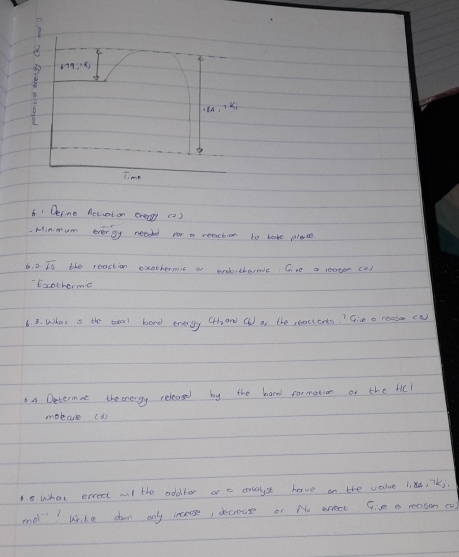 Time
6.1 Define Activation energy (2)
- Minimum energy needed for a reaction to take place
6.2 Is the reaction exothermic or endothermic Give a reason (2)
- Exothermic
6.3. What is the total bond energy of the reactants? Give a reason (2)
6.4 Determine the energy released by the bond formation of the HCl
molecule (3)
6.5 What effect will the addition of a catalyst have on the value
mol⁻¹? Write down only increase, decrease or No effect Give a reason (2)